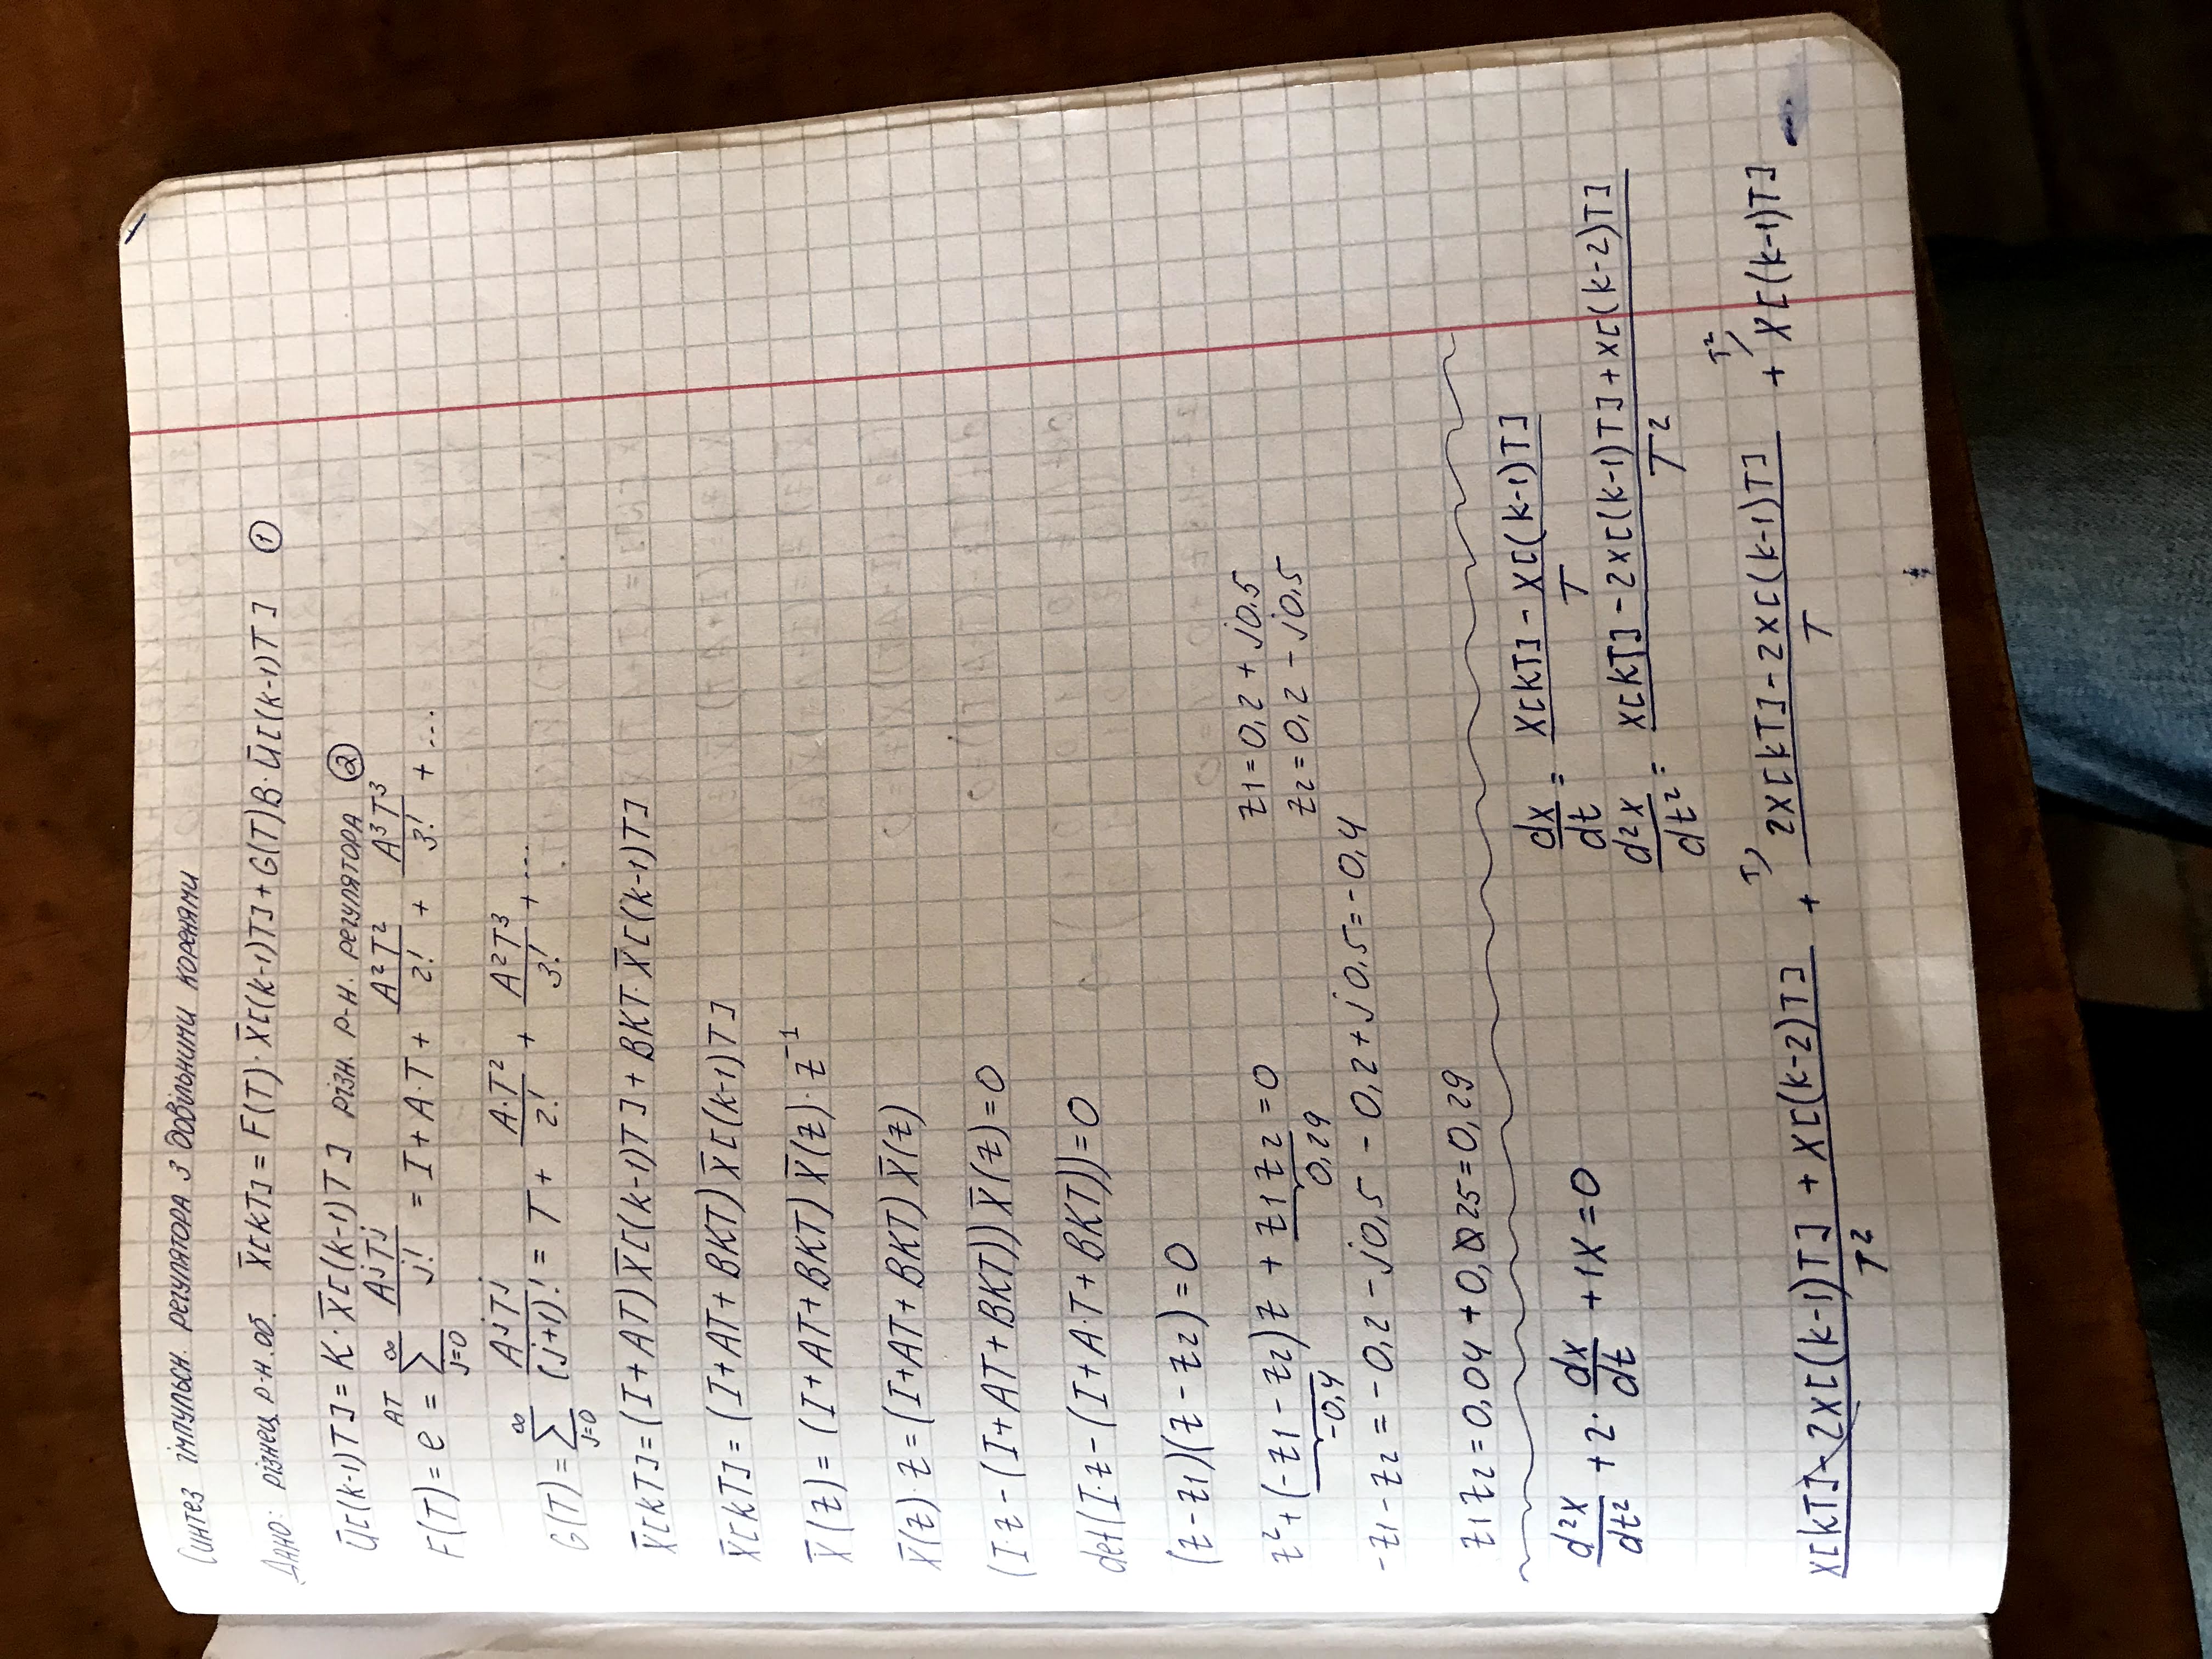 Синтез імпульсн. регулятора з довільними коренями
Дано: різнец. р-н. об. X̄[kT] = F(T)·X̄[(k-1)T] + G(T)B·Ū[(k-1)T] ①
Ū[(k-1)T] = K·X̄[(k-1)T] різн. р-н. регулятора ②
F(T) = e^{AT} = ∑_{j=0}^{∞} A^jT^j/j! = I + A·T + A²T²/2! + A³T³/3! + ...
G(T) = ∑_{j=0}^{∞} A^jT^j/(j+1)! = T + A·T²/2! + A²T³/3! + ...
X̄[kT] = (I+AT)X̄[(k-1)T] + BKT·X̄[(k-1)T]
X̄[kT] = (I+AT+BKT)X̄[(k-1)T]
X̄(z) = (I+AT+BKT)X̄(z)·z⁻¹
X̄(z)·z = (I+AT+BKT)X̄(z)
(I·z-(I+AT+BKT))X̄(z) = 0
det(I·z-(I+A·T+BKT)) = 0
(z-z₁)(z-z₂) = 0
z² + (-z₁-z₂)z + z₁z₂ = 0
-0,4 0,29
z₁ = 0,2 + j0,5
z₂ = 0,2 - j0,5
-z₁-z₂ = -0,2 - j0,5 - 0,2 + j0,5 = -0,4
z₁z₂ = 0,04 + 0,25 = 0,29
d²x/dt² + 2·dx/dt + 1x = 0
dx/dt = (x[kT] - x[(k-1)T])/T
d²x/dt² = (x[kT] - 2x[(k-1)T] + x[(k-2)T])/T²
(x[kT] - 2x[(k-1)T] + x[(k-2)T])/T² + ^{T)} (2x[kT] - 2x[(k-1)T])/T + ^{T²)} x[(k-1)T]